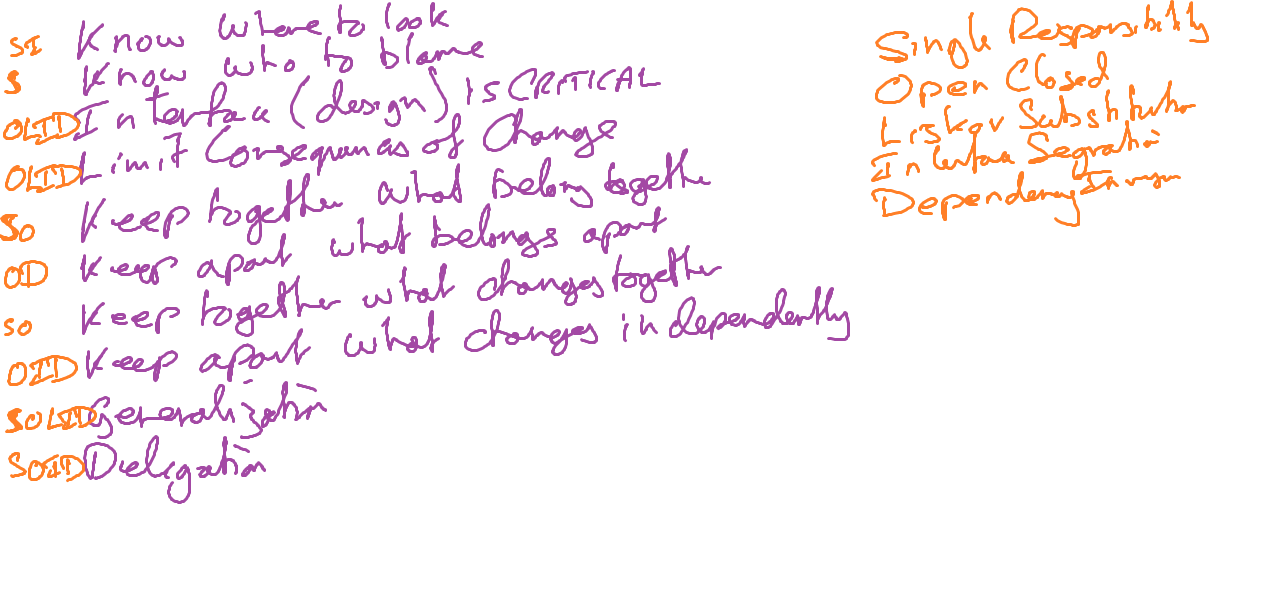 SI Know where to look
S Know who to blame
OLID Interface (design) is CRITICAL
OLID Limit Consequences of Change
SO Keep together what belong together
OD Keep apart what belongs apart
SO Keep together what changes together
OID Keep apart what changes independently
SOLID Generalization
SOID Delegation
Single Responsibility
Open Closed
Liskov Substitution
Interface Segration
Dependency Inversion